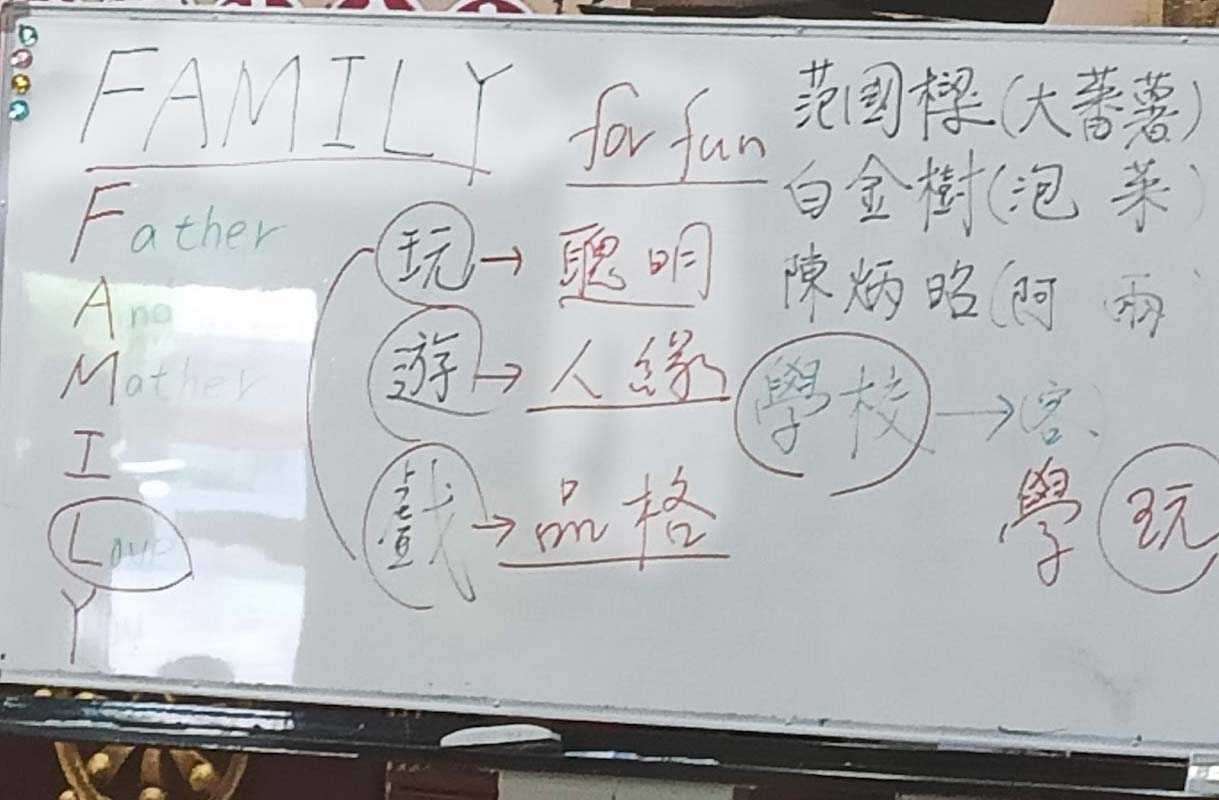 FAMILY for fun
范國樑(大蕃薯)
白金樹(泡菜)
陳炳昭(阿雨
Father
And
Mather
I
Love
You
玩→聰明
遊→人緣
戲→品格
學校→客
學玩